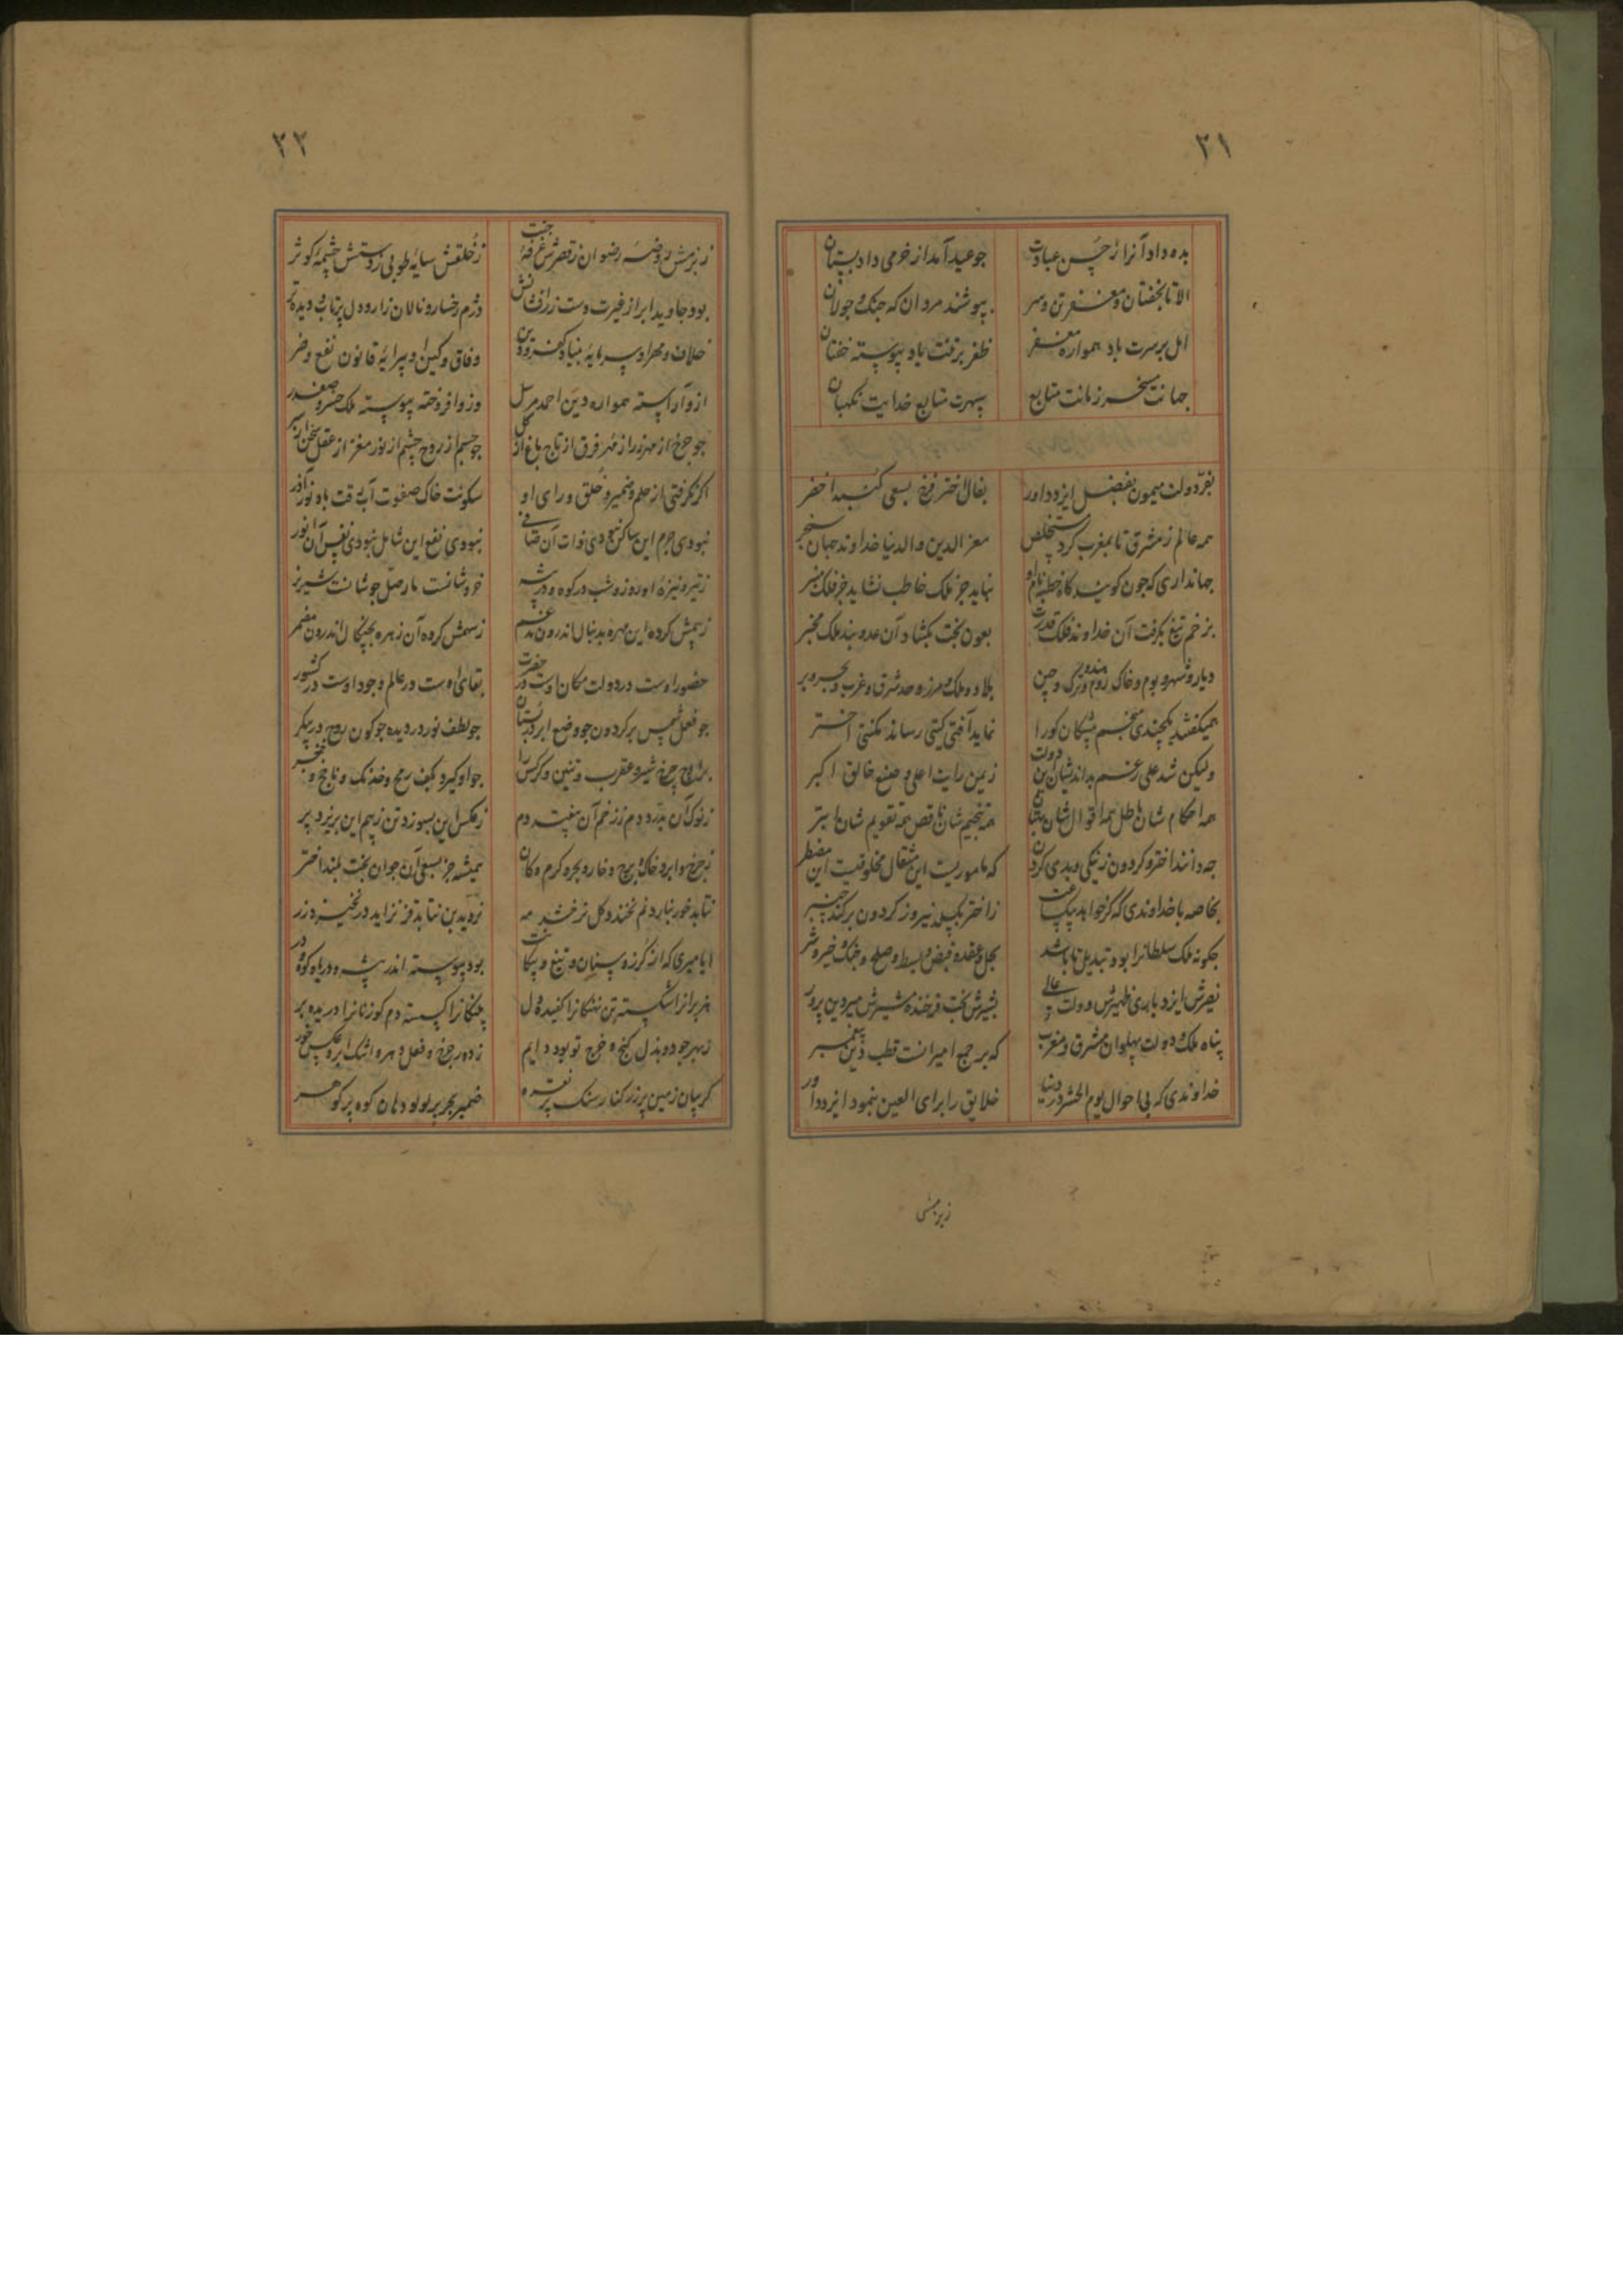 ۳۱
بده داد آنرا ز حسن عبادت جو عید آمد از خرمی داد بستان
الا تا بخفتان و مغفر تن و سر بپوشند مردان که جنک و جولان
امل بر سرت باد همواره مغفر ظفر بر تنت باد پیوسته خفتان
جهانت مسخر زمانت متابع سپهرت متابع خدایت نکهبان
بفرّ دولت میمون بفضل ایزد داور بفال اختر فرخ بسعی کنبد اخضر
همه عالم ز مشرق تا بمغرب کرد مستخلص معز الدین والدنیا خداوند جهان سنجر
جهانداری که چون کویند کاه خطبه نام او نباید جز ملک خاطب نشاید جز فلک منبر
بزخم تیغ بکرفت آن خداوند فلک قدرت بعون بخت بکشاد آن عدو بند ملک مخبر
دیار و شهر و بوم و خاک روم و هند و ترک و چین بلاد و ملک و مرز و حد شرق و غرب و بحر و بر
همیکفتند یکچندی منجم پیشکان کورا نماید آفتی کیتی رساند نکبتی اختر
ولیکن شد علی رغم بداندیشان این دولت زمین رایت اعلی و صنع خالق اکبر
همه احکام شان باطل همه اقوال شان همه تنجیم شان ناقص همه تقویم شان ابتر
چه دانند اختر و کردون ز نیکی و بدی کردن که ماموریست این مخلوقیست این مضطر
بخاصه با خداوندی که کر خواهد بیک ساعت ز اختر بکسلد نیرو ز کردون برکند چنبر
چکونه ملک سلطانرا بود تبدیل تا باشد بحل و عقد و قبض و بسط و صلح و جنک و خیر و شر
نصیرش ایزد باری ظهیرش دولت عالی بشیرش بخت فرخنده مشیرش میر دین پرور
پناه ملک و دولت پهلوان مشرق و مغرب که بر جمع امیرانست قطب دین پیغمبر
خداوندی که بی احوال یوم الحشر در دنیا خلایق را برای العین بنمود ایزد داور
زبزمش
۳۲
ز بزمش روضه رضوان ز قصرش غرفه جنت ز خلقش سایه طوبی ز دستش چشمه کوثر
بود جاوید ابر از غیرت دست زرافشانش دژم رخسار و نالان زار و دل پرتاب و دیده تر
خلاف و مهر او سرمایه بنیاد کفر و دین وفاق و کین او پیرایه قانون نفع و ضر
ازو آراسته همواره دین احمد مرسل وزو افروخته پیوسته ملک خسرو صفدر
چو چرخ از مهر و زر از مهر و فرق از تاج و باغ از کل چو جسم از روح و چشم از نور و مغز از عقل
اکر نکرفتی از حلم و ضمیر و خلق و رای او سکونت خاک و صفوت آب و رقت باد و نور آذر
نبودی جرم این ساکن نبودی ذات آن صافی نبودی نفع این شامل نبودی نفس آن انور
ز تیر و نیزه او روز و شب در کوه و در بیشه خروشانست مار صل جوشانست شیر نر
ز بیمش کرده این مهره بدنبال اندرون مدغم ز سهمش کرده آن زهره بچنکال اندرون مضمر
حضور اوست در دولت مکان اوست در حضرت بقای اوست در عالم وجود اوست در کشور
چو فعل شمس بر کردون چو وضع ابر در بستان چو لطف نور در دیده چو کون روح در پیکر
چرخ شیر و عقرب و تنین و کرکس را چو او کیرد بکف رمح و خدنک و ناچخ و خنجر
ز نوک آن بدرد دم ز زخم آن بیفتد دم ز عکس این بسوزد تن ز بیم این بریزد پر
ز چرخ و ابر و خاک و برج و خار و بحر و کرم و کان همیشه جز بسعی آن جوان بخت بلند اختر
نتابد خور نبارد نم نخندد کل نرخشد مه نروید بن نتابد قز نزاید در نخیزد زر
ایا میری که از کرز و سنان و تیغ و پیکانت بود پیوسته اندر بیشه و دریا و کوه و در
هزبرانرا شکسته تن نهنکانرا کفیده دل پلنکانرا کسسته دم کوزنانرا دریده بر
ز بهر جود و بذل و کنج و خرج تو بود دایم ز دور چرخ و فعل و مهر و اشک ابر و عکس خور
کریبان زمین پر زر کنار سنک پر نقره ضمیر بحر پر لولو دهان کوه پر کوهر